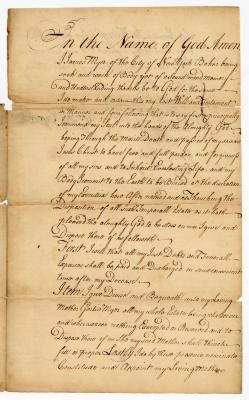 In the Name of God Amen
I James Myer of the City of New York Baker being
sick and weak of Body yet of a Sound mind memory
and Understanding thanks be to God for the same
I do make and ordain this my Last Will and Testament
in Manner and form following that is to say first & principally
I commend my Soul into the hands of the Almighty God
hoping Through the Merits Death and passion of my saviour
Jesus Christ to have free and full pardon and forgiveness
of all my sins and to Inherit Everlasting Life and my
Body I commit to the Earth to be Buried at the discretion
of my Executrix here after named and as Touching the
Disposition of all such Temporall Estate as it hath
pleased the almighty God to bestow on me I give and
Dispose thereof as followeth
First I will that all my Just Debts and Funerall
Expences shall be paid and Discharged in convenient
time after my Decease
Item I give Devise and Bequeath unto my Loving
Mother Myer all my whole Estate being
and whatsoever nothing Excepted or Reserved and to
Dispose thereof as She my said Mother shall think
fit or proper Lastly I do by these presents nominate
Constitute and Appoint my Loving Mother